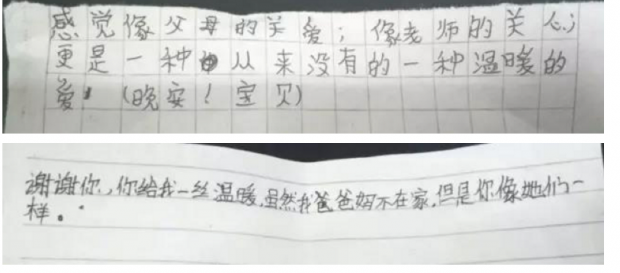 感觉像父母的关爱；像老师的关心；
更是一种从来没有的一种温暖的
爱！（晚安！宝贝）
谢谢你，你给我一丝温暖，虽然我爸爸妈不在家，但是你像她们一
样。